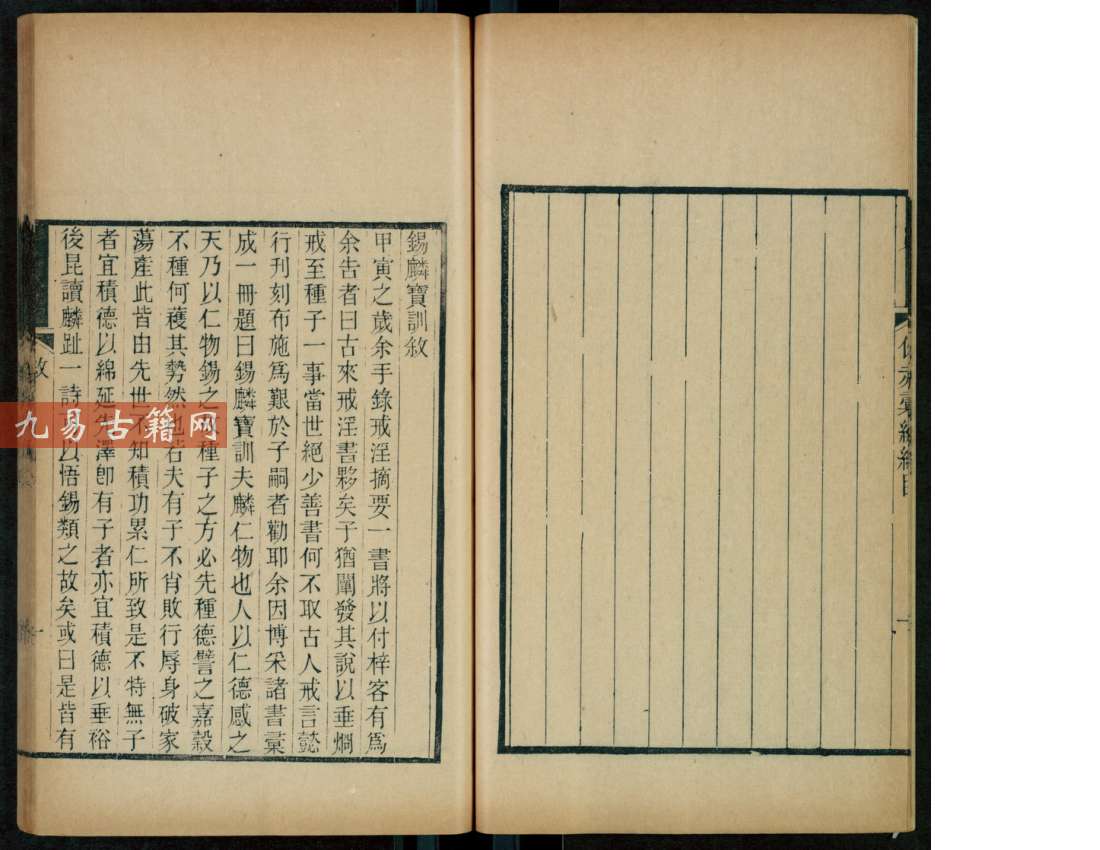 錫麟寶訓敘
甲寅之歲余手錄戒淫摘要一書將以付梓客有爲
余告者曰古來戒淫書夥矣子猶闡發其說以垂烱
戒至種子一事當世絕少善書何不取古人戒言懿
行刊刻布施爲艱於子嗣者勸耶余因博采諸書彙
成一冊題曰錫麟寶訓夫麟仁物也人以仁德感之
天乃以仁物錫之故種子之方必先種德譬之嘉穀
不種何穫其勢然也若夫有子不肖敗行辱身破家
蕩產此皆由先世不知積功累仁所致是不特無子
者宜積德以綿延先澤卽有子者亦宜積德以垂裕
後昆讀麟趾一詩可以悟錫類之故矣或曰是皆有
敘
一
九易古籍网